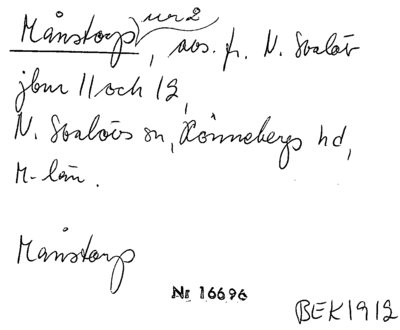 Månstorp nr 2, avs. fr. N. Svalöv
jbnr 11 och 12,
N. Svalövs sn, Rönnebergs hd,
M-län.
Månstorp
Nr 16696
BEK1912